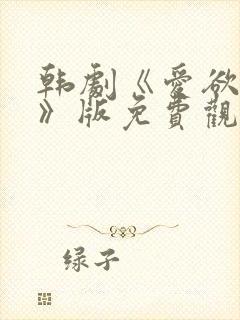 韩劇《愛欲
》版免費觀
绿子